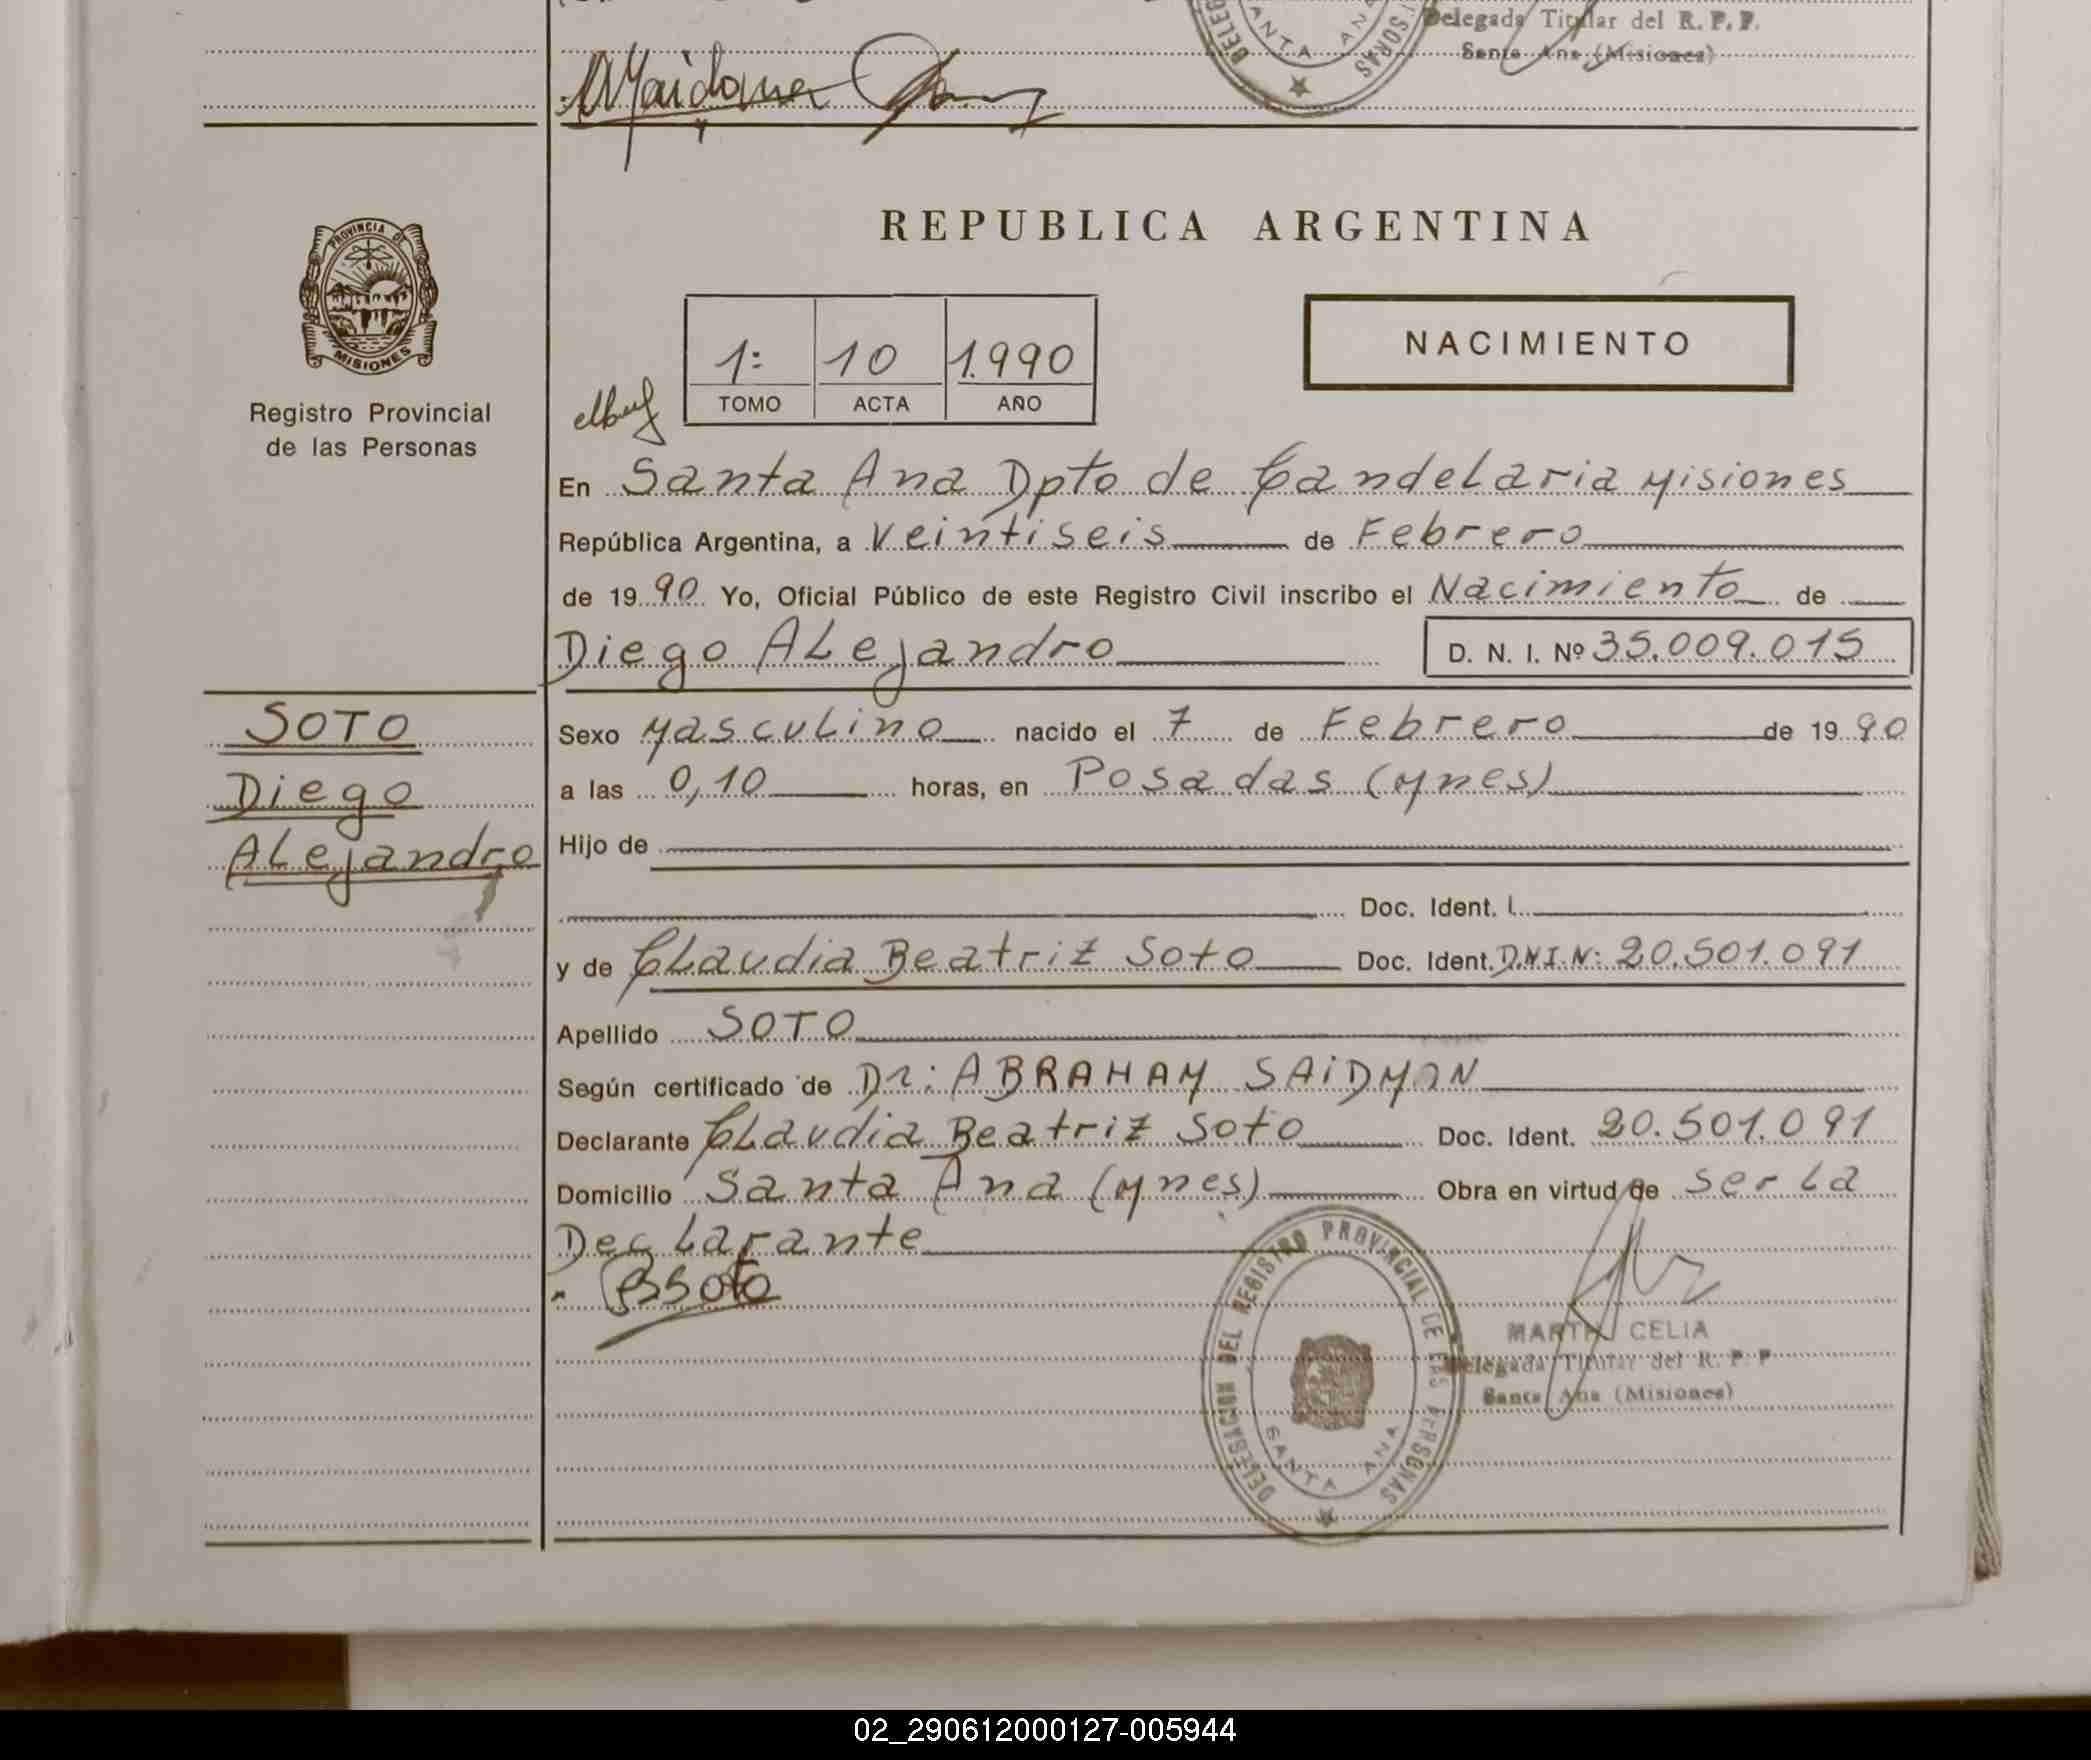 Delegada Titular del R. P. P.
Santa Ana (Misiones)
SANTA ANA
Maidana
PROVINCIA DE
MISIONES
Registro Provincial
de las Personas
REPUBLICA ARGENTINA
NACIMIENTO
1: 10 1.990
TOMO ACTA AÑO
En Santa Ana Dpto de Candelaria Misiones
República Argentina, a Veintiseis de Febrero
de 1990 Yo, Oficial Público de este Registro Civil inscribo el Nacimiento de
Diego Alejandro D. N. I. Nº 35.009.015
SOTO
Diego
Alejandro
Sexo Masculino nacido el 7 de Febrero de 1990
a las 0,10 horas, en Posadas (Mnes)
Hijo de
Doc. Ident.
y de Claudia Beatriz Soto Doc. Ident. D.N.I.N: 20.501.091
Apellido SOTO
Según certificado de Dr: ABRAHAM SAIDMAN
Declarante Claudia Beatriz Soto Doc. Ident. 20.501.091
Domicilio Santa Ana (Mnes) Obra en virtud de ser la
Declarante
BSoto
DELEGACION DEL REGISTRO PROVINCIAL DE LAS PERSONAS
SANTA ANA
CELIA
Delegada Titular del R. P. P.
Santa Ana (Misiones)
02_290612000127-005944